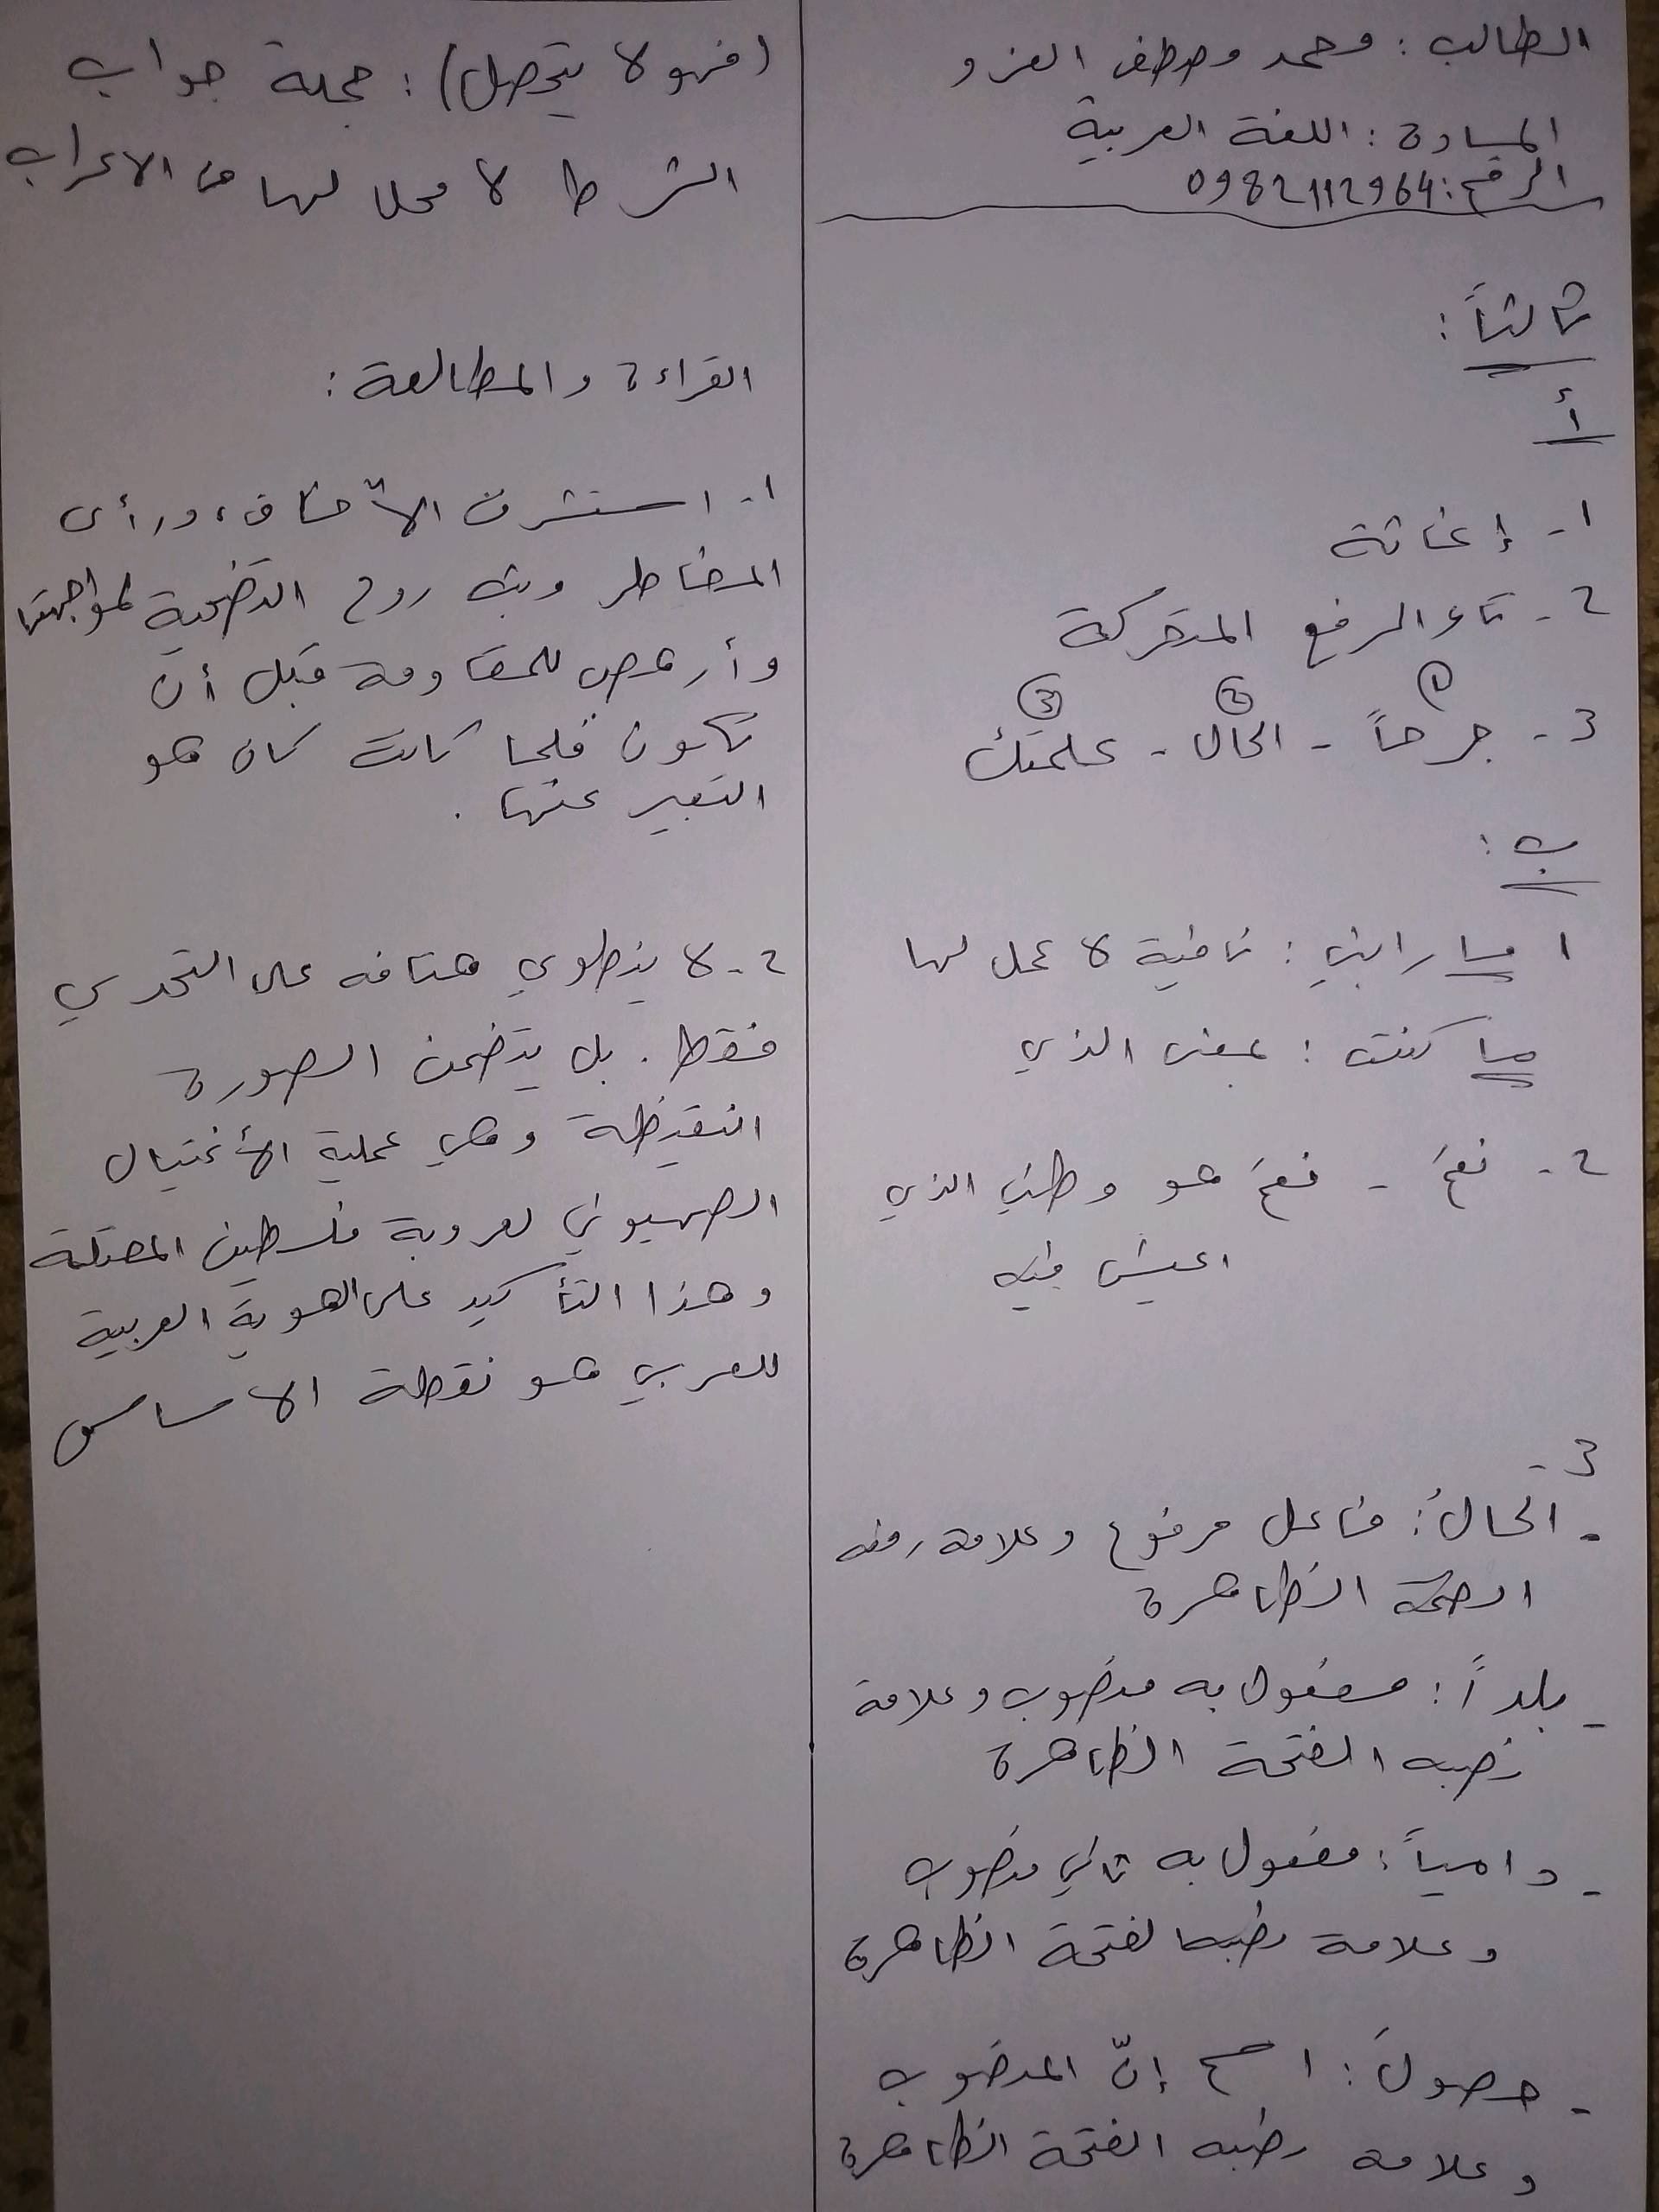 الطالب : محمد مصطفى الغزو
المادة : اللغة العربية
الرقم : 0982112964
ثالثاً :
أ
1- إغاثة
2- تاء الرفع المتحركة
3- جرحاً - الحال - علمتك
① ② ③
ب :
1 ما رابني : نافية لا عمل لها
ما كنت : بمعنى الذي
2- نعمَ - نعمَ هو وطني الذي
اعيش فيه
3-
- الحالُ : فاعل مرفوع وعلامة رفعه
الضمة الظاهرة
- بلداً : مفعول به منصوب وعلامة
نصبه الفتحة الظاهرة
- دامياً : مفعول به ثاني منصوب
وعلامة نصبه الفتحة الظاهرة
- حصولَ : اسم إنّ المنصوب
وعلامة نصبه الفتحة الظاهرة
(فهو لا يتحصل) : جملة جواب
الشرط لا محل لها من الاعراب
القراءة والمطالعة :
1- استشرف الآفاق ، ورأى
المخاطر وبث روح التضحية لمواجهتها
وأرهص للمقاومة قبل أن
تكون فلما كانت كان هو
التعبير عنها .
2- لا ينطوي هتافه على التحدي
فقط . بل يتضمن الصورة
النقيظة وهي عملية الأغتيال
الصهيوني لعروبة فلسطين المحتلة
وهذا التأكيد على الهوية العربية
للعربي هو نقطة الاساس